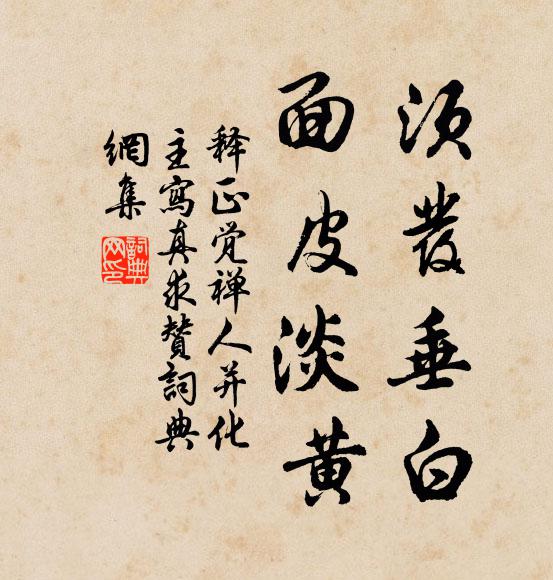 须發垂白
面皮淡黄
释正觉禅人并化
主寫真求贊詞典
網集
詞典網印